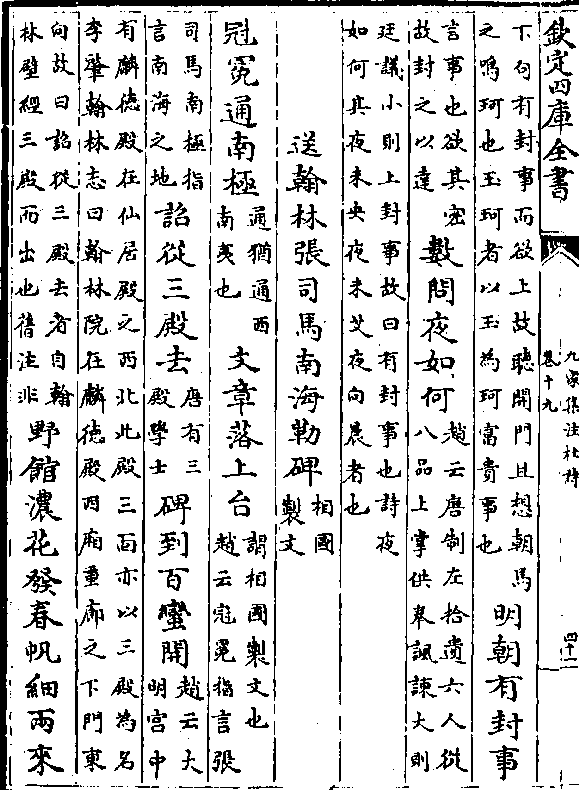 欽定四庫全書
九家集注杜詩
卷十九
四十一
下句有封事而欲上故聽開門且想朝馬
之鳴珂也玉珂者以玉為珂富貴事也
明朝有封事
言事也欲其宻
故封之以達
數問夜如何
趙云唐制左拾遺六人從
八品上掌供奉諷諫大則
廷議小則上封事故曰有封事也詩夜
如何其夜未央夜未艾夜向晨者也
送翰林張司馬南海勒碑
相國
製文
冠冕通南極
通猶通西
南夷也
文章落上台
謂相國製文也
趙云冠冕指言張
司馬南極指
言南海之地
詔從三殿去
唐有三
殿學士
碑到百蠻開
趙云大
明宫中
有麟德殿在仙居殿之西北此殿三面亦以三殿為名
李肇翰林志曰翰林院在麟德殿西廂重廊之下門東
向故曰詔從三殿去者自翰
林壁經三殿而出也舊注非
野館濃花發春帆細雨來